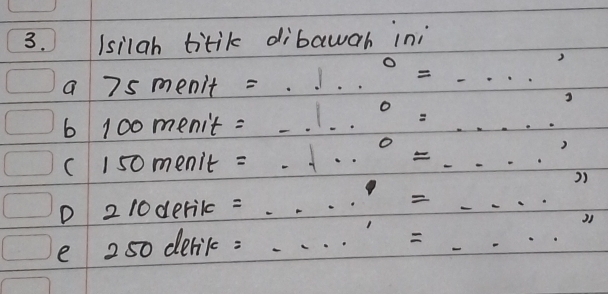 3. Isilah titik dibawah ini
a 75 menit = . . . . ° = - . . . '
b 100 menit = - . . . . ° = . . . . . '
c 150 menit = . . . . ° = - . . . . '
D 210 detik = . . . . ' = - . . . "
e 250 detik = - . . . ' = - . . . "